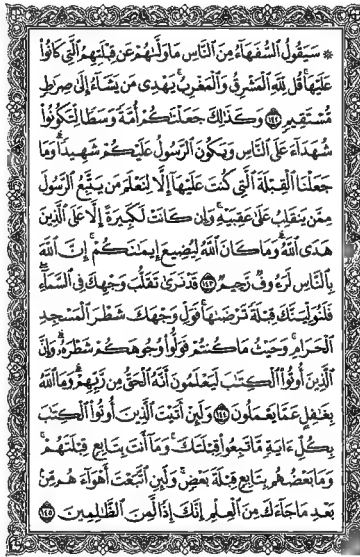 ۞ سَيَقُولُ ٱلسُّفَهَآءُ مِنَ ٱلنَّاسِ مَا وَلَّىٰهُمْ عَن قِبْلَتِهِمُ ٱلَّتِي كَانُوا۟
عَلَيْهَا ۚ قُل لِّلَّهِ ٱلْمَشْرِقُ وَٱلْمَغْرِبُ ۚ يَهْدِي مَن يَشَآءُ إِلَىٰ صِرَٰطٍ
مُّسْتَقِيمٍ ١٤٢ وَكَذَٰلِكَ جَعَلْنَٰكُمْ أُمَّةً وَسَطًا لِّتَكُونُوا۟
شُهَدَآءَ عَلَى ٱلنَّاسِ وَيَكُونَ ٱلرَّسُولُ عَلَيْكُمْ شَهِيدًا ۗ وَمَا
جَعَلْنَا ٱلْقِبْلَةَ ٱلَّتِي كُنتَ عَلَيْهَآ إِلَّا لِنَعْلَمَ مَن يَتَّبِعُ ٱلرَّسُولَ
مِمَّن يَنقَلِبُ عَلَىٰ عَقِبَيْهِ ۚ وَإِن كَانَتْ لَكَبِيرَةً إِلَّا عَلَى ٱلَّذِينَ
هَدَى ٱللَّهُ ۗ وَمَا كَانَ ٱللَّهُ لِيُضِيعَ إِيمَٰنَكُمْ ۚ إِنَّ ٱللَّهَ
بِٱلنَّاسِ لَرَءُوفٌ رَّحِيمٌ ١٤٣ قَدْ نَرَىٰ تَقَلُّبَ وَجْهِكَ فِي ٱلسَّمَآءِ ۖ
فَلَنُوَلِّيَنَّكَ قِبْلَةً تَرْضَىٰهَا ۚ فَوَلِّ وَجْهَكَ شَطْرَ ٱلْمَسْجِدِ
ٱلْحَرَامِ ۚ وَحَيْثُ مَا كُنتُمْ فَوَلُّوا۟ وُجُوهَكُمْ شَطْرَهُۥ ۗ وَإِنَّ
ٱلَّذِينَ أُوتُوا۟ ٱلْكِتَٰبَ لَيَعْلَمُونَ أَنَّهُ ٱلْحَقُّ مِن رَّبِّهِمْ ۗ وَمَا ٱللَّهُ
بِغَٰفِلٍ عَمَّا يَعْمَلُونَ ١٤٤ وَلَئِنْ أَتَيْتَ ٱلَّذِينَ أُوتُوا۟ ٱلْكِتَٰبَ
بِكُلِّ ءَايَةٍ مَّا تَبِعُوا۟ قِبْلَتَكَ ۚ وَمَآ أَنتَ بِتَابِعٍ قِبْلَتَهُمْ ۚ
وَمَا بَعْضُهُم بِتَابِعٍ قِبْلَةَ بَعْضٍ ۚ وَلَئِنِ ٱتَّبَعْتَ أَهْوَآءَهُم مِّنۢ
بَعْدِ مَا جَآءَكَ مِنَ ٱلْعِلْمِ ۙ إِنَّكَ إِذًا لَّمِنَ ٱلظَّٰلِمِينَ ١٤٥